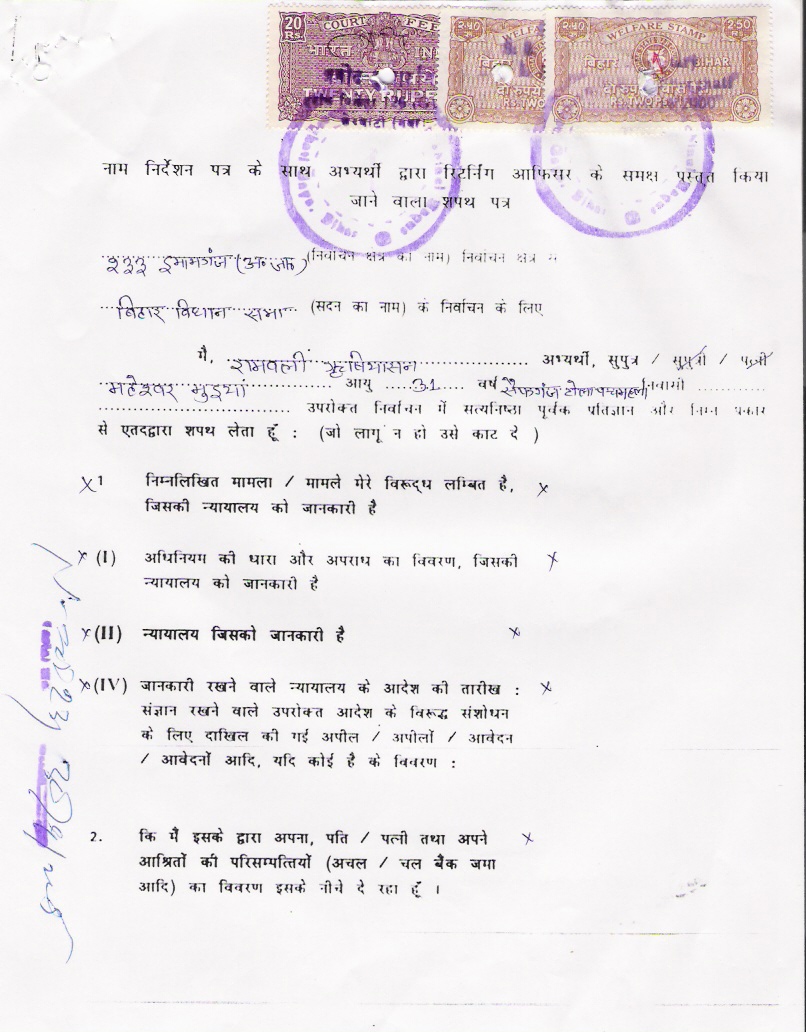 20 Rs.
COURT FEE
भारत
TWENTY RUPEE
WELFARE
२.५०
बिहार
RS. TWO
२.५० WELFARE STAMP 2.50
बिहार BIHAR
RS. TWO
नाम निर्देशन पत्र के साथ अभ्यर्थी द्वारा रिटर्निंग आफिसर के समक्ष प्रस्तुत किया
जाने वाला शपथ पत्र
२३३ इमामगंज (अ० जा०) (निर्वाचन क्षेत्र का नाम) निर्वाचन क्षेत्र से
बिहार विधान सभा (सदन का नाम) के निर्वाचन के लिए
मै, रामवली ऋषियासन अभ्यर्थी, सुपुत्र / सुपुत्री / पत्नी
महेश्वर भुइयां आयु 31 वर्ष सैफगंज टोला निवासी
उपरोक्त निर्वाचन में सत्यनिष्ठा पूर्वक प्रतिज्ञान और निम्न प्रकार
से एतदद्वारा शपथ लेता हूँ : (जो लागू न हो उसे काट दे )
x 1 निम्नलिखित मामला / मामले मेरे विरूद्ध लम्बित है, x
जिसकी न्यायालय को जानकारी है
x (I) अधिनियम की धारा और अपराध का विवरण, जिसकी x
न्यायालय को जानकारी है
x (II) न्यायालय जिसको जानकारी है x
x (IV) जानकारी रखने वाले न्यायालय के आदेश की तारीख : x
संज्ञान रखने वाले उपरोक्त आदेश के विरूद्ध संशोधन
के लिए दाखिल की गई अपील / अपीलों / आवेदन
/ आवेदनों आदि, यदि कोई है के विवरण :
2. कि मैं इसके द्वारा अपना, पति / पत्नी तथा अपने x
आश्रितों की परिसम्पत्तियों (अचल / चल बैंक जमा
आदि) का विवरण इसके नीचे दे रहा हूँ ।